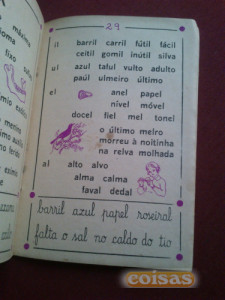 máximo
fixo
exímio
29
il barril carril fútil fácil
ceitil gomil inútil silva
ul azul taful vulto adulto
paúl ulmeiro último
el anel papel
nível móvel
docel fiel mel tonel
o último melro
morreu à noitinha
na relva molhada
al alto alvo
alma calma
faval dedal
barril azul papel roseiral
falta o sal no caldo do tio
coisas